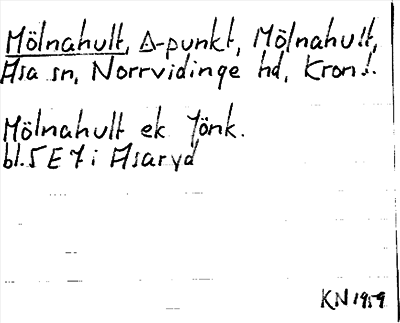 Mölnahult, Δ-punkt, Mölnahult,
Asa sn, Norrvidinge hd, Kron.l.
Mölnahult ek Jönk.
bl. 5 E 7 i Asaryd
KN 1959